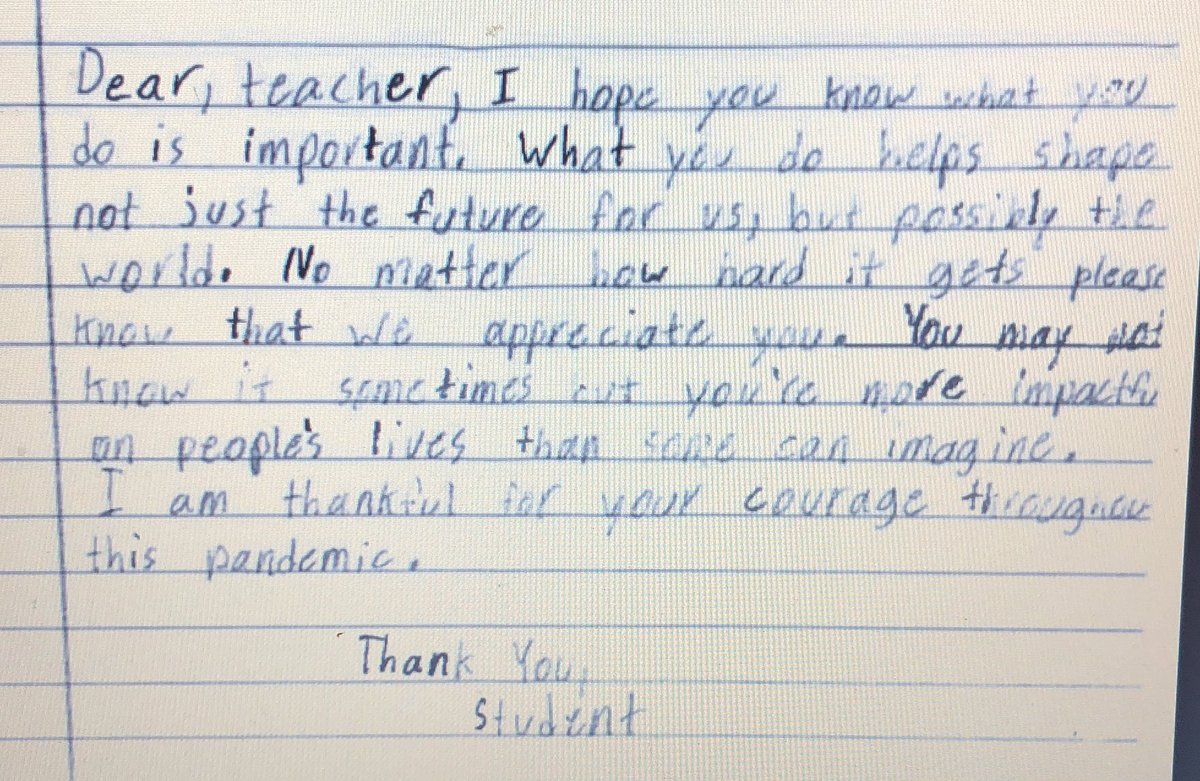 Dear, teacher, I hope you know what you
do is important. What you do helps shape
not just the future for us, but possibly the
world. No matter how hard it gets please
know that we appreciate you. You may not
know it sometimes but you're more impactfu
on people's lives than some can imagine.
I am thankful for your courage throughou
this pandemic.
Thank You,
Student